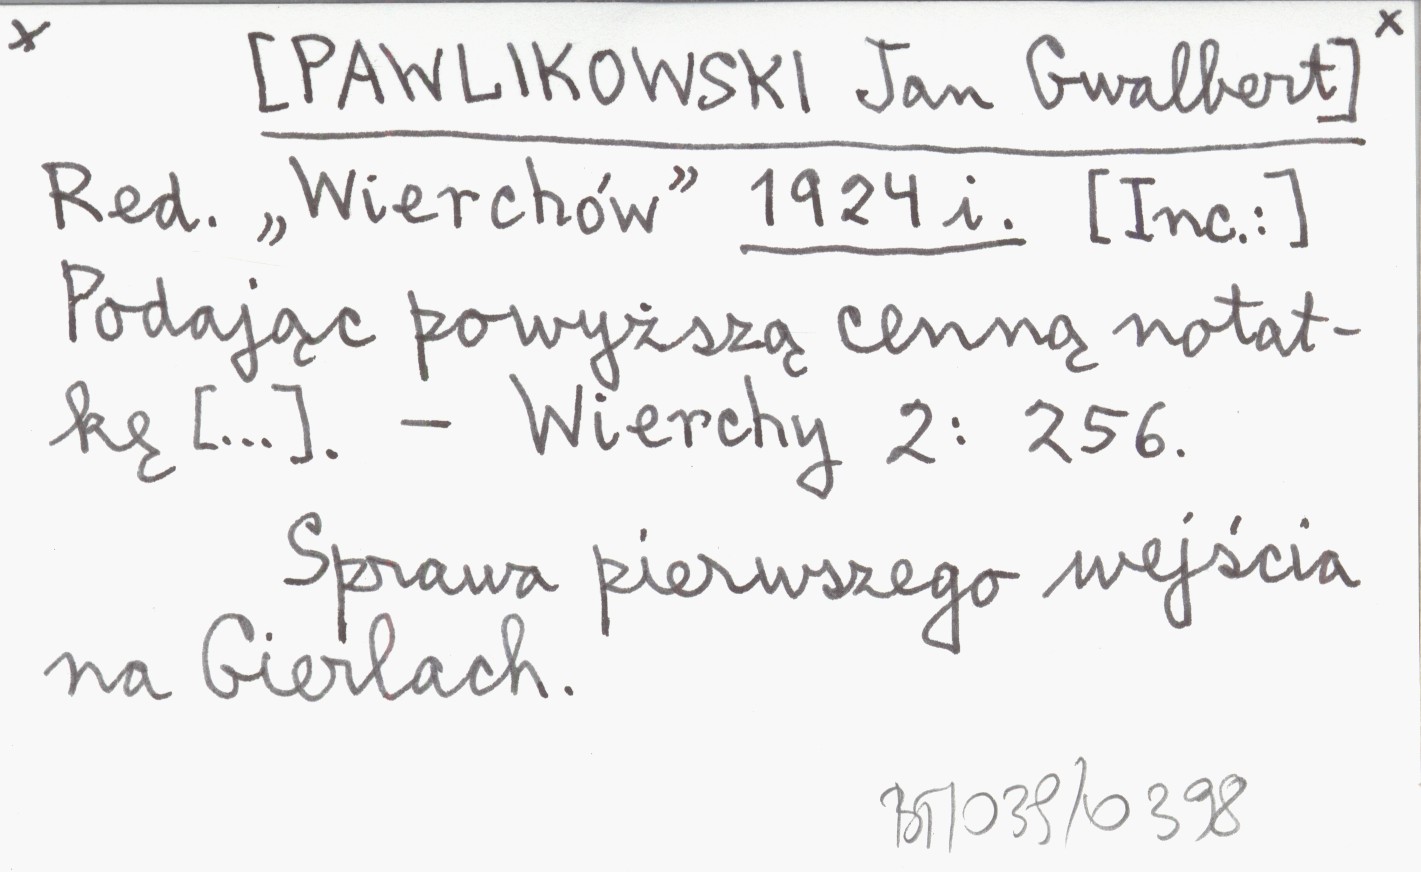 x x
[PAWLIKOWSKI Jan Gwalbert]
Red. „Wierchów” 1924 i. [Inc.:]
Podając powyższą cenną notat-
kę [...]. – Wierchy 2: 256.
Sprawa pierwszego wejścia
na Gierlach.
BT/039/0398